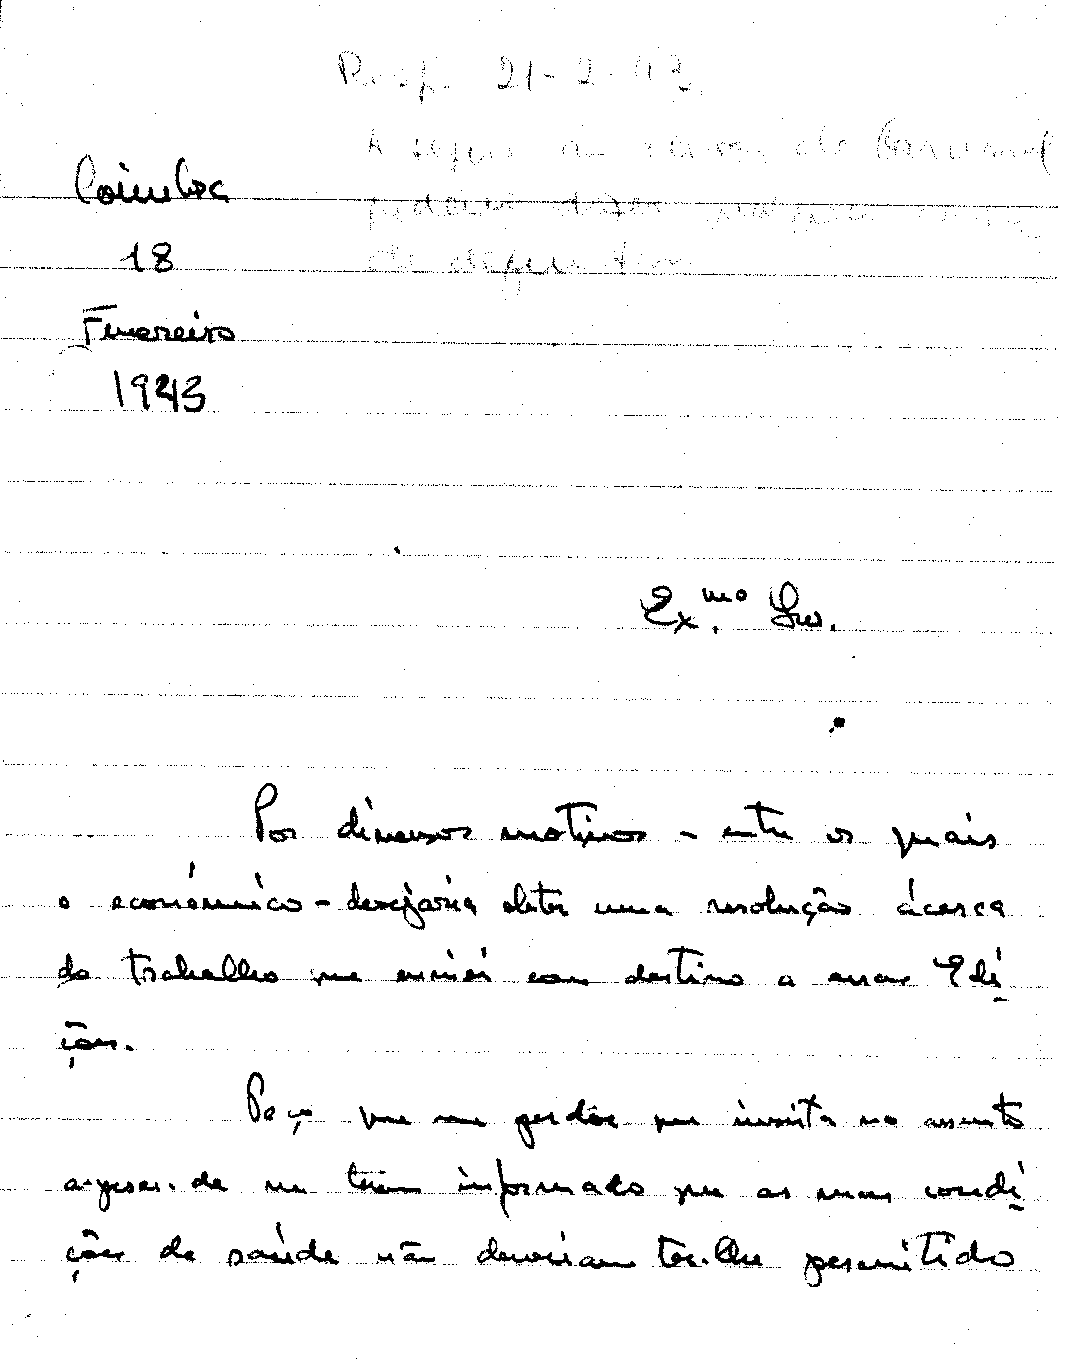 Resp. 21-2-43.
A seguir ao do Carnaval
poderei dizer qualquer coisa
de definitivo
Coimbra
18
Fevereiro
1943
Ex.mo Snr.
Por diversos motivos - entre os quais
o económico - desejaria obter uma resolução ácerca
do trabalho que enviei com destino a essas Edi-
ções.
Peço que me perdõe que insista no assunto
a-pesar-de me terem informado que as suas condi-
ções de saúde não deveriam ter-lhe permitido